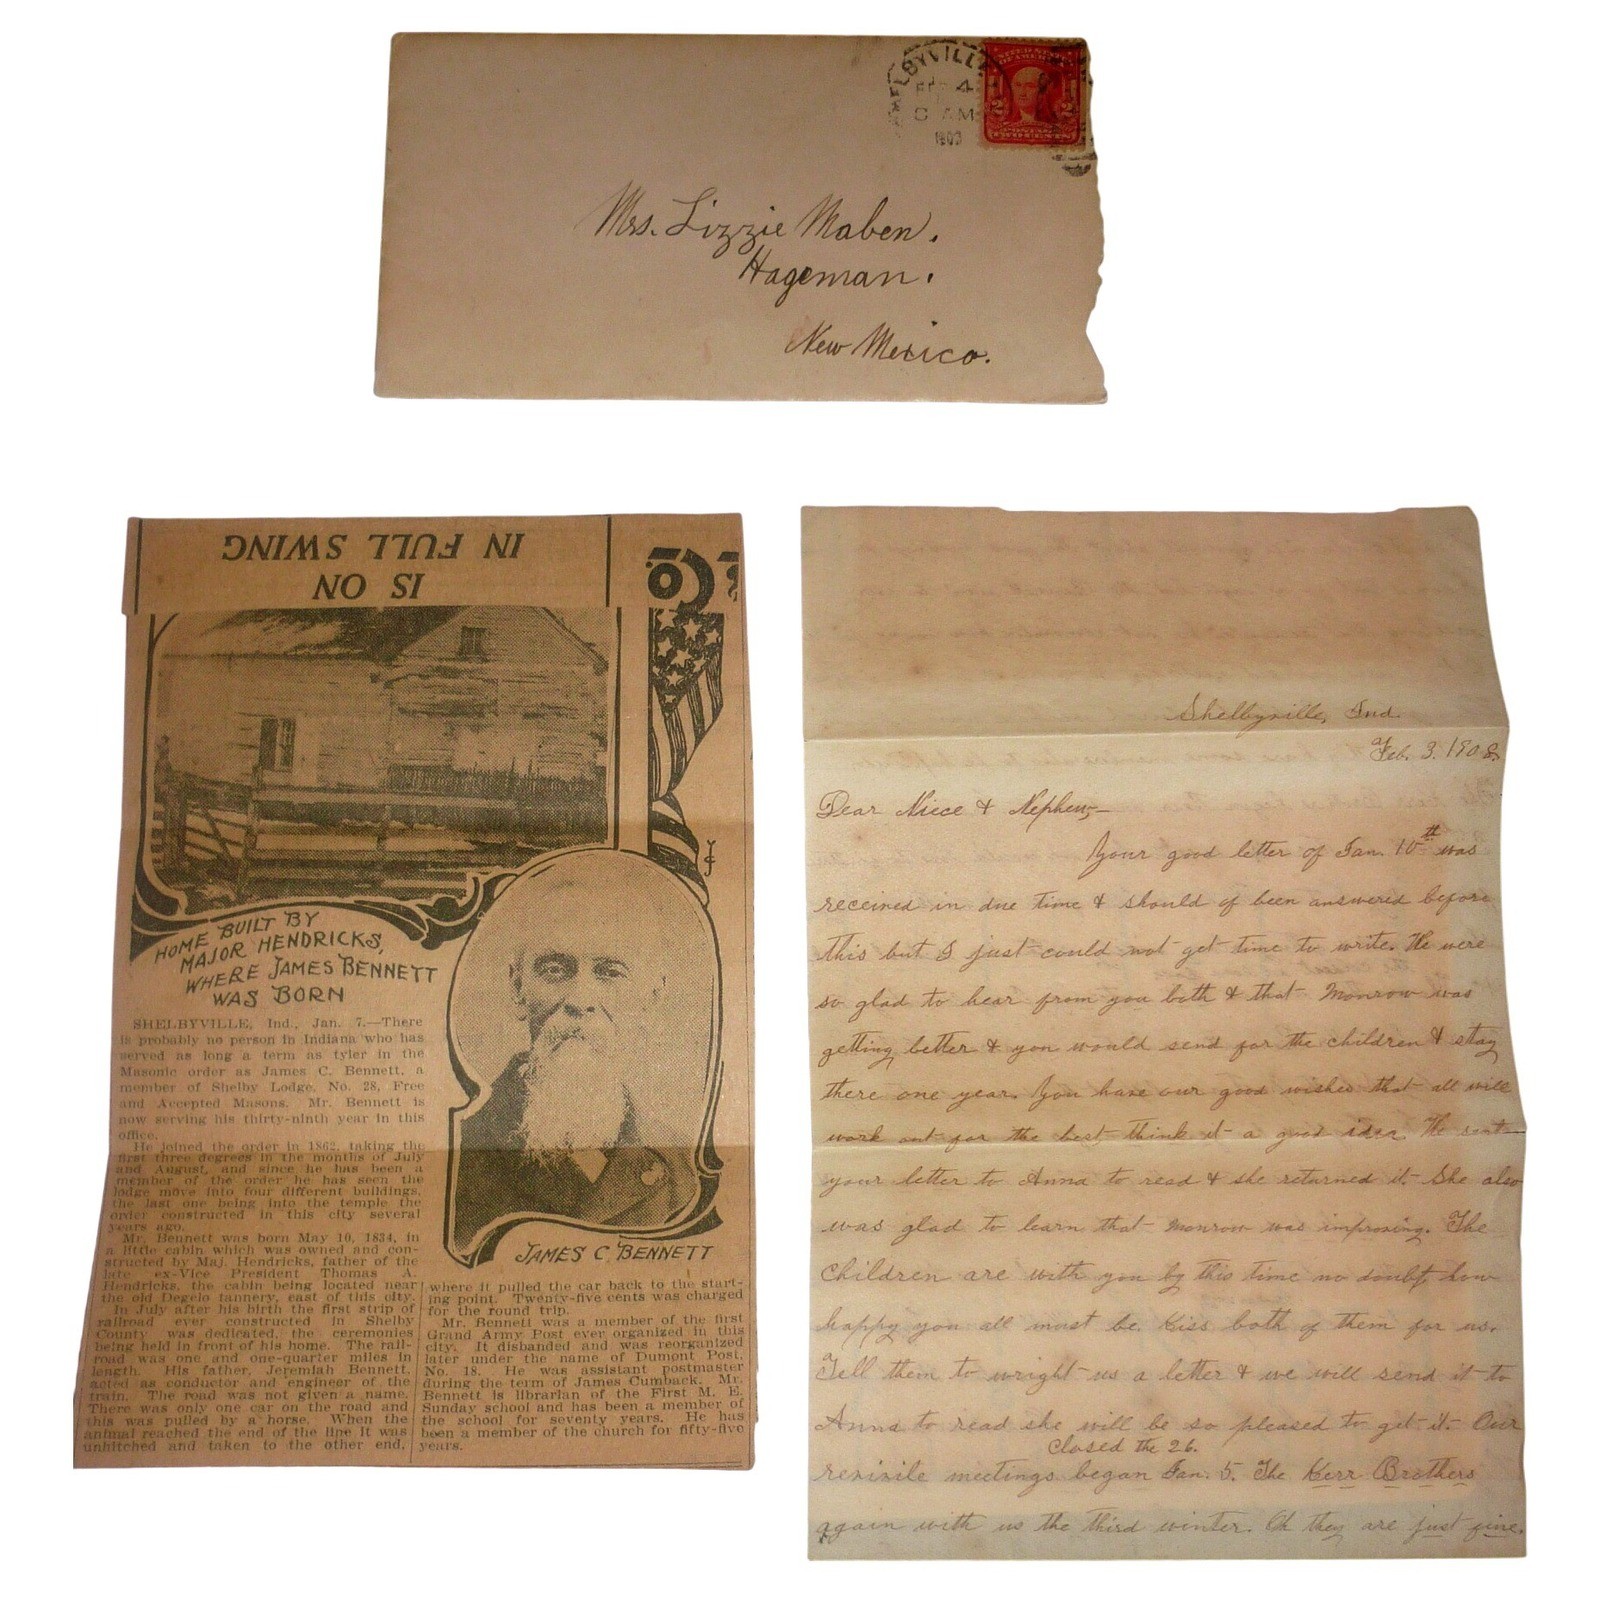 SHELBYVILLE
FEB 4
AM
UNITED STATES
OF AMERICA
2 2
POSTAGE
TWO CENTS
Mrs. Lizzie Maben.
Hageman.
New Mexico.
IS ON
IN FULL SWING
HOME BUILT BY
MAJOR HENDRICKS,
WHERE JAMES BENNETT
WAS BORN
JAMES C. BENNETT
SHELBYVILLE, Ind., Jan. 7.—There
is probably no person in Indiana who has
served as long a term as tyler in the
Masonic order as James C. Bennett, a
member of Shelby Lodge, No. 28, Free
and Accepted Masons. Mr. Bennett is
now serving his thirty-ninth year in this
office.
He joined the order in 1862, taking the
first three degrees in the months of July
and August, and since he has been a
member of the order he has seen the
lodge move into four different buildings,
the last one being into the temple the
order constructed in this city several
years ago.
Mr. Bennett was born May 10, 1834, in
a little cabin which was owned and con-
structed by Maj. Hendricks, father of the
late ex-Vice President Thomas A.
Hendricks, the cabin being located near
the old Degelo tannery, east of this city.
In July after his birth the first strip of
railroad ever constructed in Shelby
County was dedicated, the ceremonies
being held in front of his home. The rail-
road was one and one-quarter miles in
length. His father, Jeremiah Bennett,
acted as conductor and engineer of the
train. The road was not given a name.
There was only one car on the road and
this was pulled by a horse. When the
animal reached the end of the line it was
unhitched and taken to the other end,
where it pulled the car back to the start-
ing point. Twenty-five cents was charged
for the round trip.
Mr. Bennett was a member of the first
Grand Army Post ever organized in this
city. It disbanded and was reorganized
later under the name of Dumont Post,
No. 18. He was assistant postmaster
during the term of James Cumback. Mr.
Bennett is librarian of the First M. E.
Sunday school and has been a member of
the school for seventy years. He has
been a member of the church for fifty-five
years.
Shelbyville, Ind.
Feb. 3. 1908.
Dear Niece & Nephew,—
Your good letter of Jan. 10th was
received in due time & should of been answered before
this but I just could not get time to write. We were
so glad to hear from you both & that Monrow was
getting better & you would send for the children & stay
there one year. You have our good wishes that all will
work out for the best think it a good idea. We sent
your letter to Anna to read & she returned it. She also
was glad to learn that Monrow was improving. The
children are with you by this time no doubt, how
happy you all must be. Kiss both of them for us.
Tell them to wright us a letter & we will send it to
Anna to read she will be so pleased to get it. Our
closed the 26.
revivile meetings began Jan. 5. The Kerr Brothers
again with us the third winter. Oh they are just fine.